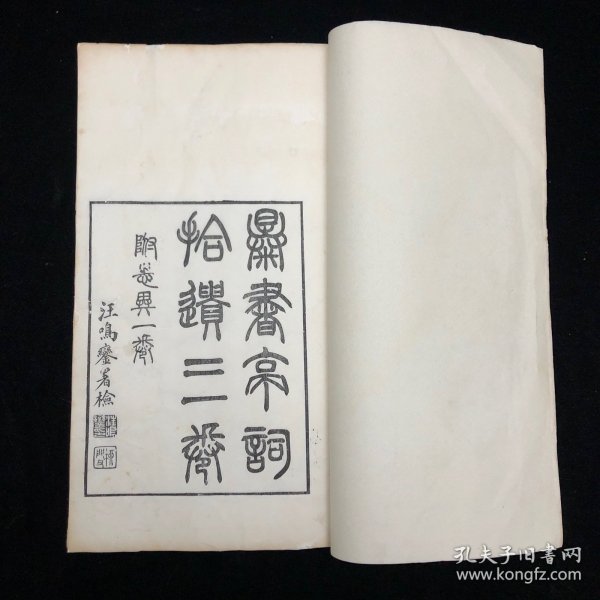 暴書亭詞
拾遺三卷
附志異一卷
汪鳴鑾署檢
孔夫子旧書网
www.kongfz.com